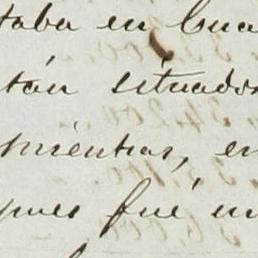 taba en Cua
tán situados
mientras, en
pues fué un